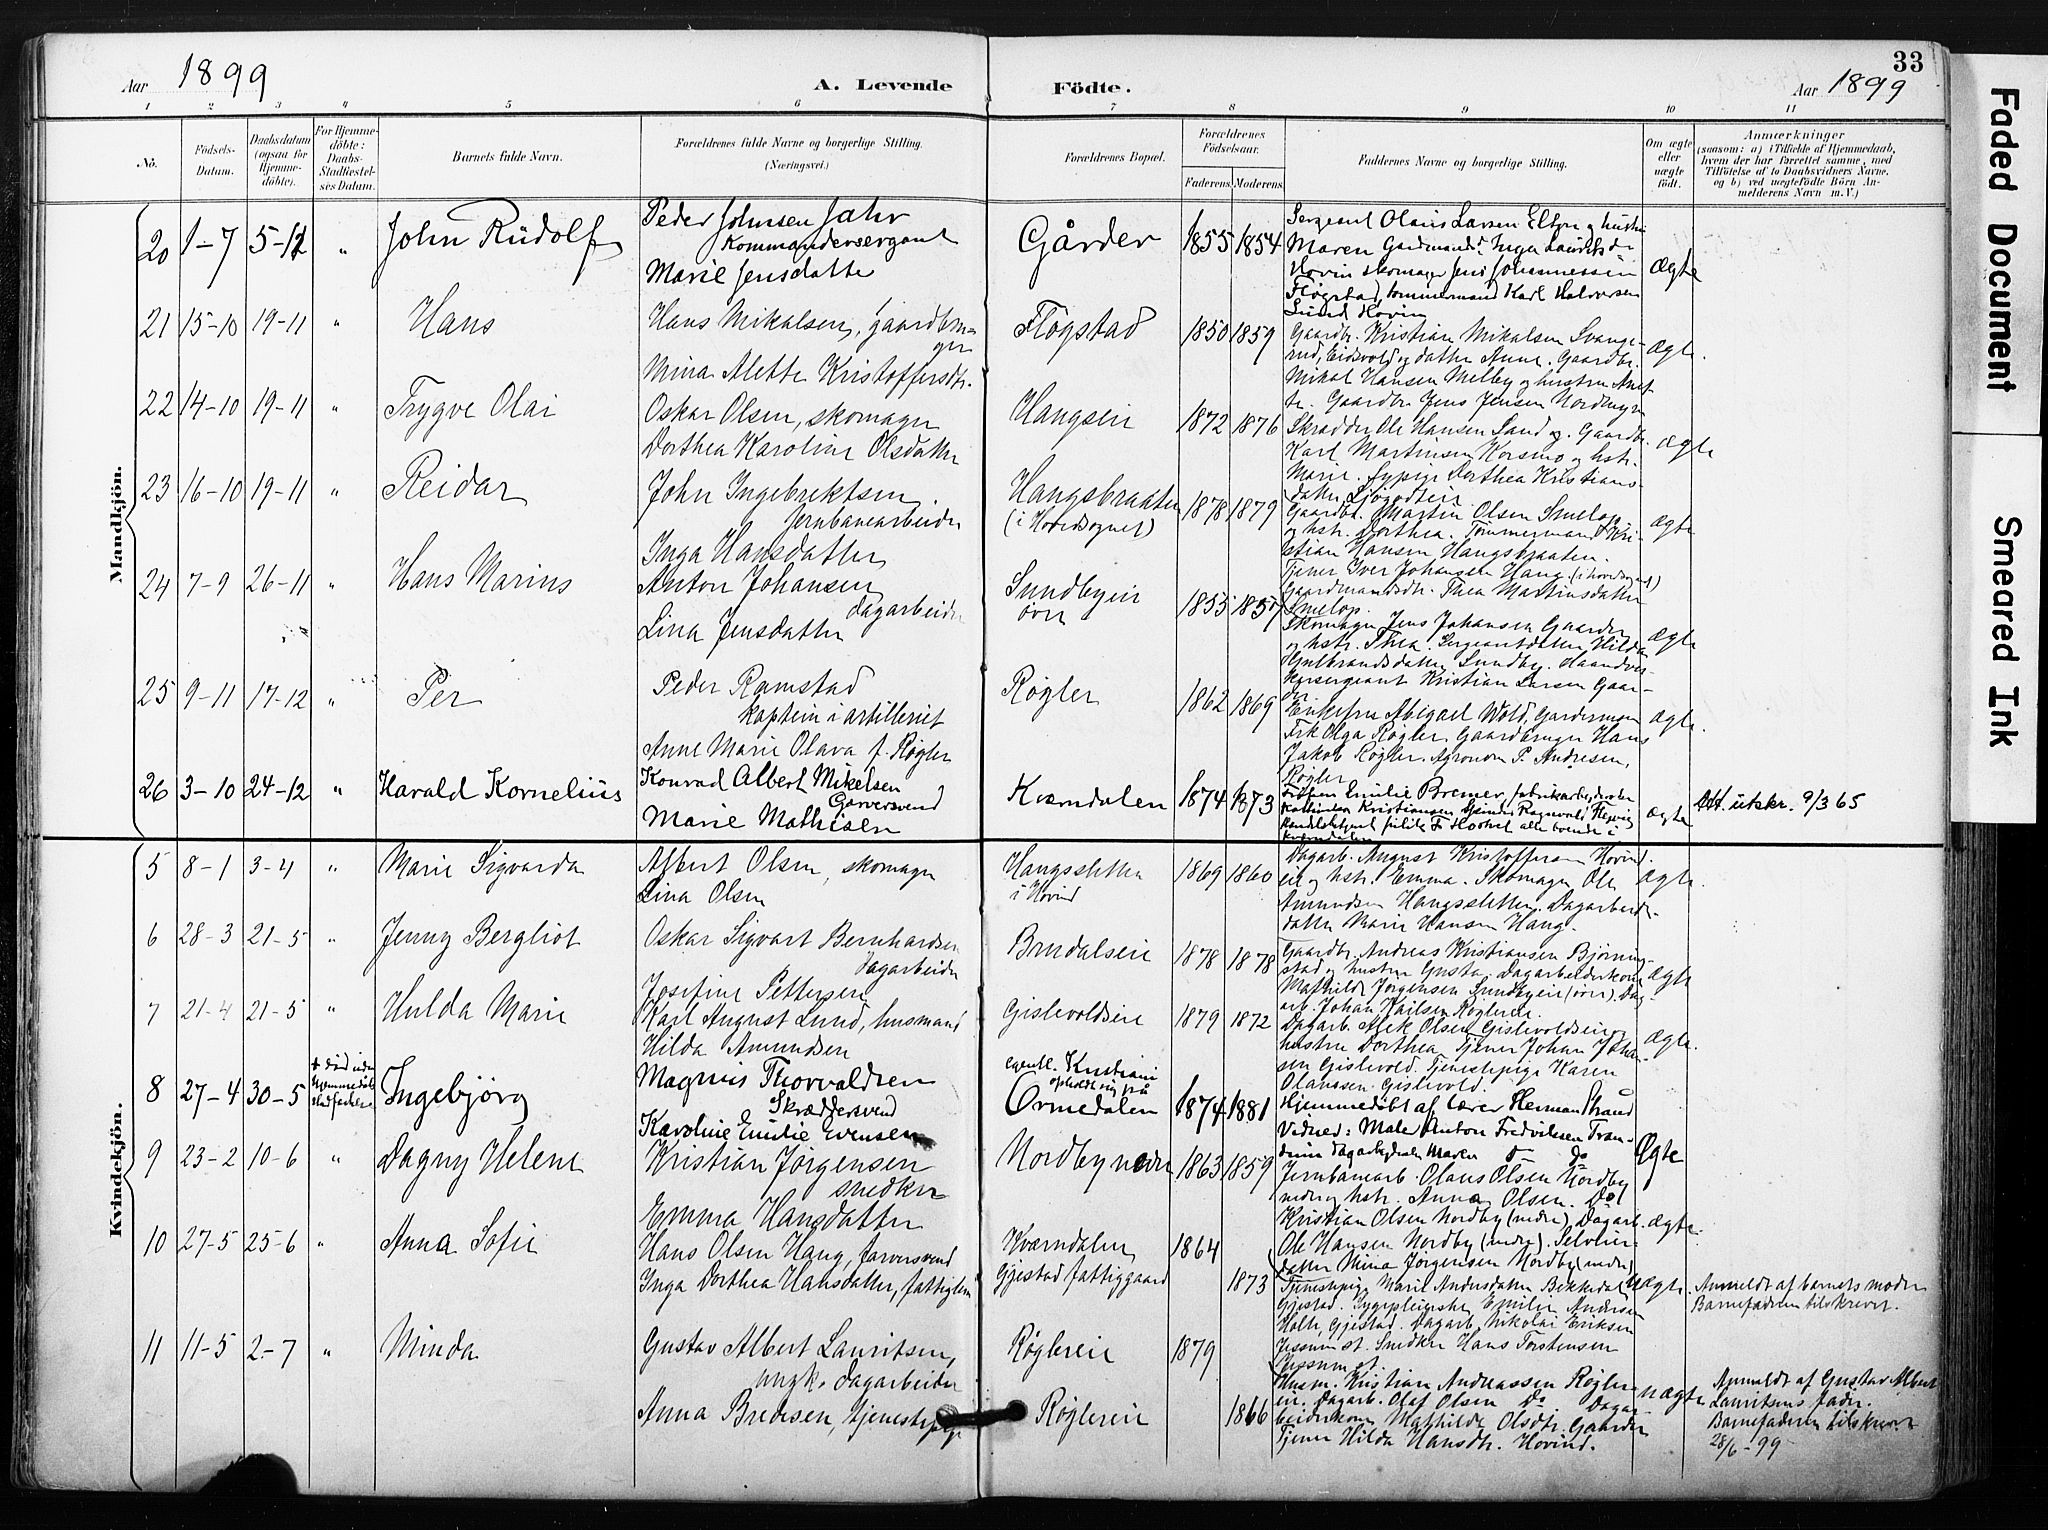 33
Aar 1899
A. Levende
Födte.
Aar 1899
1 2 3 4 5 6 7 8 9 10 11
No.
Födsels-Datum.
Daabsdatum (ogsaa for Hjemme-döbte).
For Hjemme-döbte: Daabs-Stadfæstel-ses Datum.
Barnets fulde Navn.
Forældrenes fulde Navne og borgerlige Stilling.
(Næringsvei.)
Forældrenes Bopæl.
Forældrenes Födselsaar.
Faderens. Moderens.
Faddernes Navne og borgerlige Stilling.
Om ægte eller uægte födt.
Anmærkninger
(saasom: a) i Tilfælde af Hjemmedaab,
hvem der har forrettet samme, med
Tilföielse af to Daabsvidners Navne.
og b) ved uægtefödte Börn An-
melderens Navn m. V.)
Mandkjön.
20 1-7 5-11 " John Rüdolf
Peder Johnsen Jahr
Kommandersergant
Marie Jensdatte
Gårder 1855 1854
Sergeant Olaus Larsen Eltyn og hustru
Maren Gardmandsd. Inga Laurits d.
Hovin skomager Jens Johannessen
Fløgstad, tømmermand Karl Halvorsen
Lund Hovin
Ægte
21 15-10 19-11 " Hans
Hans Mikalsen, gaardbru-
ger
Mina Alette Kristoffersdtr.
Fløgstad 1850 1859
Gaardbr. Kristian Mikalsen Svange-
rud, Eidsvold og datter Anne. Gaardbr.
Mikal Hansen Melby og hustru Anet-
te. Gaardbr. Jens Jensen Nordmyr
Ægte.
22 14-10 19-11 " Trygve Olai
Oskar Olsen, skomager
Dorthea Karoline Olsdatter
Haugseie 1872 1876
Skrædder Ole Hansen Sand og Gaardbr.
Karl Martinsen Korsmo og hstr.
Marie. Sypige Dorthea Kristians-
datter
Ægte
23 16-10 19-11 " Reidar
John Ingebrektsen
Jernbanearbeider
Inga Hansdatter
Haugsbraaten
(i Hovindsognet)
1878 1879
Gaardbr. Martin Olsen Smelop
og hstr. Dorthea. Tømmermand Kri-
stian Hansen Haugsbraaten.
Tjener Iver Johansen Haug
Gaardmandsdtr. Thea Martinsdatter
Smelop.
Ægte
24 7-9 26-11 " Hans Marius
Anton Johansen
dagarbeider
Lina Jensdatter
Sundbyeie
øvre
1855 1857
Skomager Jens Johansen Gaarder
og hstr. Thea. Sergeantdatter Hilda
Gulbrandsdatter Sundby. Haandver-
kersergeant Kristian Larsen Gaar-
der.
Ægte
25 9-11 17-12 " Per
Peder Ramstad
kaptein i artilleriet
Anne Marie Olava f. Røgler
Røgler 1862 1869
Enkefru Abigael Wold, Gardermoen
Frk Olga Røgler. Gaardbruger Hans
Jakob Røgler. Agronom P. Andresen,
Røgler
Ægte.
26 3-10 24-12 " Harald Kornelius
Konrad Albert Mikelsen
Garversvend
Marie Mathisen
Kværndalen 1874 1873
Frøken Emilie Bremer, fabrikarbeiderske
Kathinka Kristiansen, Spinder Ragnvald
alle boende i
Kværndalen
Ægte Att. utskr. 9/3 65
Kvindekjön.
5 8-1 3-4 " Marie Sigvarda
Albert Olsen, skomager
Lina Olsen
Haugssletten
i Hovind
1869 1860
Dagarb. August Kristoffersen Hovind-
eie og hstr. Emma. Skomager Ole
Amundsen Haugssletten. Dagarbeider-
datter Marie Hansen Haug.
Ægte.
6 28-3 21-5 " Jenny Bergliot
Oskar Sigvart Bernhardsen
Dagarbeider
Josefine Pettersen
Brudalseie 1878 1878
Gaardbr. Andreas Kristiansen Bjørning-
stad og hustru Gusta. Dagarbeiderkone
Mathilde Jørgensen Sundbyeie (øvre). Dag-
arb. Johan Karlsen Røglereie.
Ægte
7 21-4 21-5 " Hulda Marie
Karl August Lund, husmand
Hilda Amundsen
Gislevoldseie 1879 1872
Dagarb. Alek Olsen Gislevoldseie og
hustru Dorthea. Tjener Johan Johan-
sen Gislevold. Tjenestepige Karen
Olaussen. Gislevold.
Ægte.
8 27-4 30-5 Ingebjørg
Magnus Thorvaldsen
Skræddersvend
Karoline Emilie Evensen
egentl. Kristiania
opholdt sig på
Ormedalen
1874 1881
Hjemmedøbt af lærer Herman Strand
Vidner: Maler Anton Fredriksen Tran-
dum Dagarbeider Maren
Ægte
9 23-2 10-6 " Dagny Helene
Kristian Jørgensen
snedker
Emma Hansdatter
Nordby nedre 1863 1859
Jernbanearb. Olaus Olsen Nordby
nedre og hstr. Anna Olsen. Do
Kristian Olsen Nordby (nedre). Dagarb.
Ole Hansen Nordby (nedre). Selveier-
datter Mina Jørgensen Nordby (nedre)
Ægte.
10 27-5 25-6 " Anna Sofie
Hans Olsen Haug, farversvend
Inga Dorthea Hansdatter, fattiglem
Kværndalen
Gjestad fattiggaard
1864
1873
Tjenestepige Marie Andersdatter Bekkedal
Gjestad. Sygepleierske Emilie Andersen
Holte, Gjestad. Dagarb. Nikolai Eriksen
Jessum st. Snedker Hans Torstensen
Jessum st.
uægte.
Anmeldt af barnets moder
Barnefaderen tilskrevet.
11 11-5 2-7 " Minda
Gustav Albert Lauritsen,
ungk. dagarbeider
Anna Bredesen, tjenestepige
Røglereie
Røglereie
1879
1866
Husm. Kristian Andreassen Røgler-
eie. Dagarb. Olaf Olsen Do. Dagar-
beiderkone Mathilde Olsdtr. Gaarder
Tjener Hilda Hansdtr. Hovind.
uægte
Anmeldt af Gustav Albert
Lauritsens fader.
Barnefaderen tilskrevet
28/6-99
Faded Document
Smeared Ink